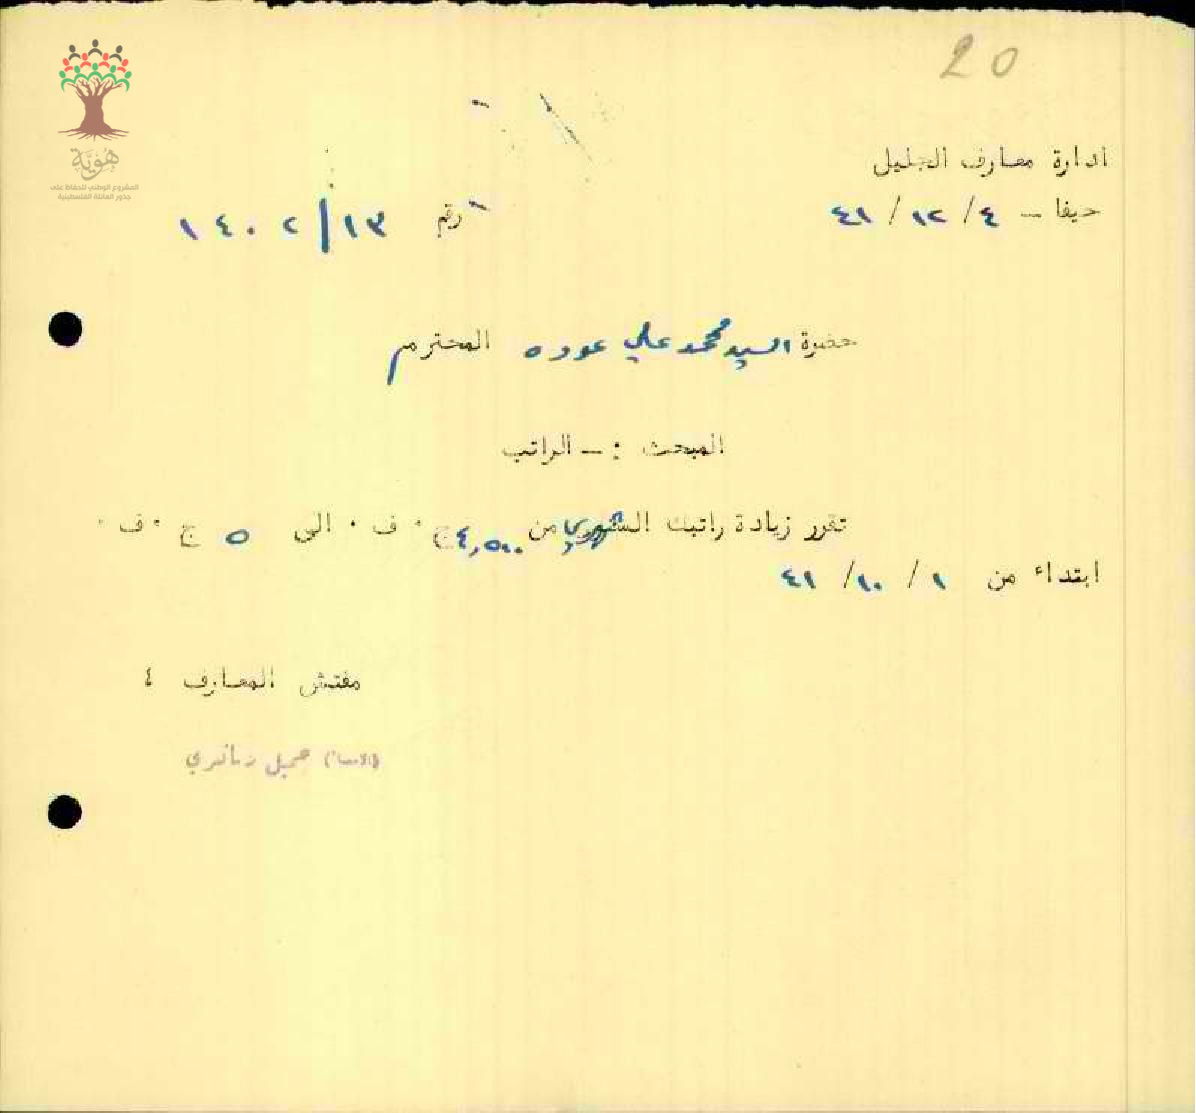 20
هُوِيَّة
المشروع الوطني للحفاظ على
جذور العائلة الفلسطينية
ادارة معارف الجليل
حيفا – ٤ / ١٢ / ٤١
رقم ١٣ / ١٤٠٢
حضرة السيد محمد علي عوده المحترم
المبحث : – الراتب
تقرر زيادة راتبك الشهري من ٤,٥٠٠ ج ٠ ف ٠ الى ٥ ج ٠ ف ٠
ابتداء من ١ / ١٠ / ٤١
مفتش المعارف ٤
جميل